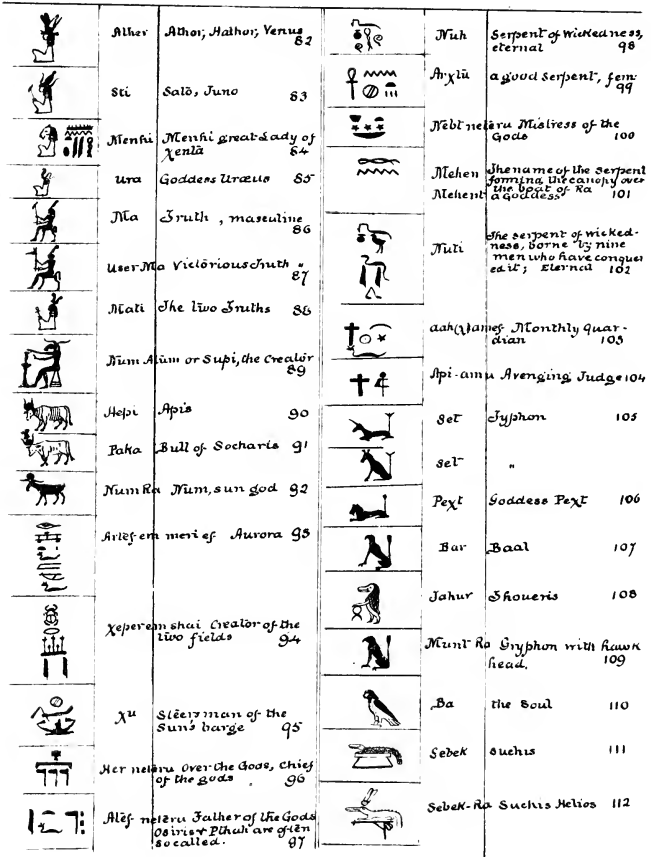 Ather Athor, Hathor, Venus
82
Sti Satō, Juno 83
Menhi Menhi great Lady of
χentā 84
Ura Goddess Uræus 85
Ma Truth, masculine
86
User Ma Victorious Truth "
87
Mati The two Truths 88
Num Atūm or Supi, the Creator
89
Hepi Apis 90
Paka Bull of Socharis 91
Num Ra Num, sun god 92
Artef em meri ef Aurora 93
χeper em shai Creator of the
two fields 94
χu Steersman of the
Sun's barge 95
Her neteru Over the Gods, Chief
of the gods 96
Atef neteru Father of the Gods
Osiris + Pthah are often
so called. 97
Nuh Serpent of wickedness,
eternal 98
Arχtū a good serpent, fem
99
Nebt neteru Mistress of the
Gods 100
Mehen The name of the serpent
forming the canopy over
the boat of Ra
Mehent a Goddess 101
Nuti The serpent of wicked-
ness, borne by nine
men who have conquer
ed it; Eternal 102
Monthly guar-
dian 103
Api-amu Avenging Judge 104
Set Typhon 105
Set "
Peχt Goddess Pext 106
Bar Baal 107
Tahur Thoueris 108
Munt Ra Gryphon with hawk
head. 109
Ba the Soul 110
Sebek Suchis 111
Sebek-Ra Suchis Helios 112